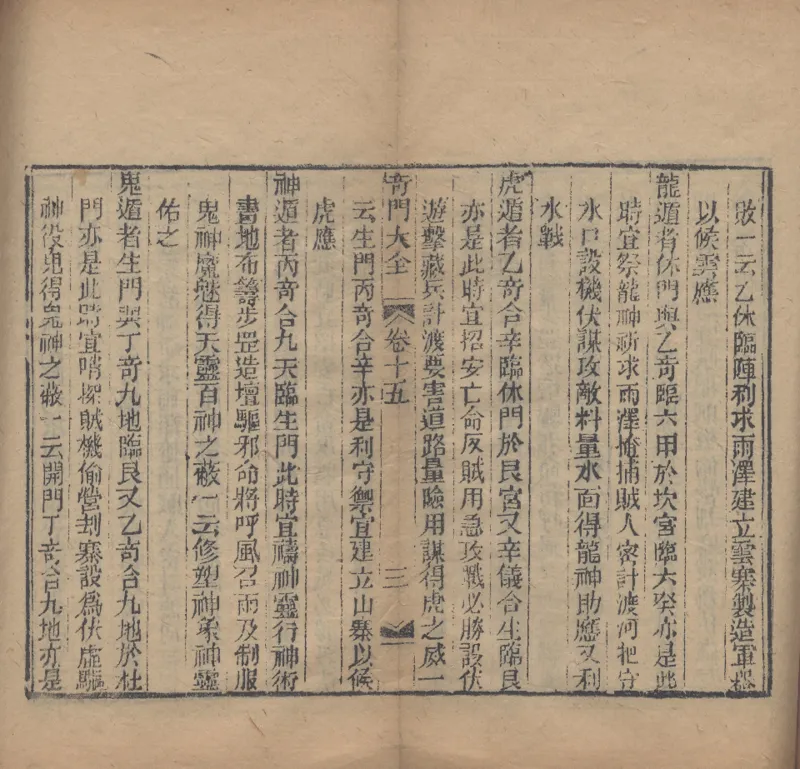 敗一云乙休臨陣利求雨澤建立雲寨製造軍器
以候雲應
龍遁者休門與乙奇臨六甲於坎宮臨六癸亦是此
時宜祭龍神祈求雨澤掩捕賊人密計渡河把守
水口設機伏謀攻敵料量水面得龍神助應又利
水戰
虎遁者乙奇合辛臨休門於艮宮又辛儀合生臨艮
亦是此時宜招安亡命反賊用急攻戰必勝設伏
遊擊藏兵計渡要害道路量險用謀得虎之威一
奇門大全 卷十五 三
云生門丙奇合辛亦是利守禦宜建立山寨以候
虎應
神遁者丙奇合九天臨生門此時宜禱神靈行神術
畫地布籌步罡造壇驅邪命將呼風召雨及制服
鬼神魔魅得天靈百神之蔽一云修塑神象神靈
佑之
鬼遁者生門與丁奇九地臨艮又乙奇合九地於杜
門亦是此時宜哨探賊機偷營刦寨設爲伏虛驅
神役鬼得鬼神之蔽一云開門丁奇合九地亦是